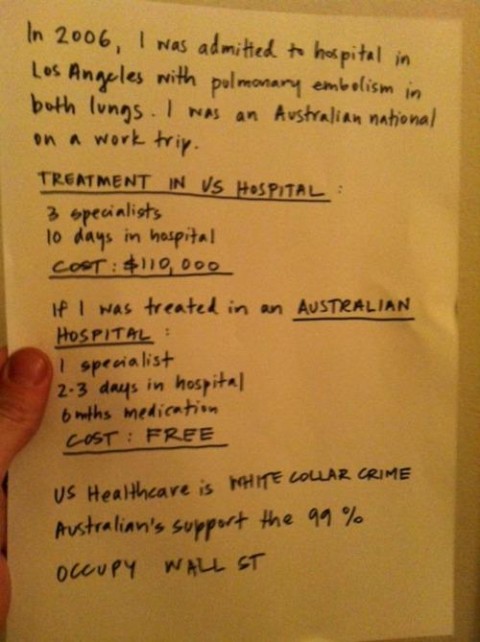 In 2006, I was admitted to hospital in
Los Angeles with pulmonary embolism in
both lungs. I was an Australian national
on a work trip.
TREATMENT IN US HOSPITAL :
3 specialists
10 days in hospital
COST : $110,000
If I was treated in an AUSTRALIAN
HOSPITAL :
1 specialist
2-3 days in hospital
6 mths medication
COST : FREE
US Healthcare is WHITE COLLAR CRIME
Australian's support the 99 %
OCCUPY WALL ST